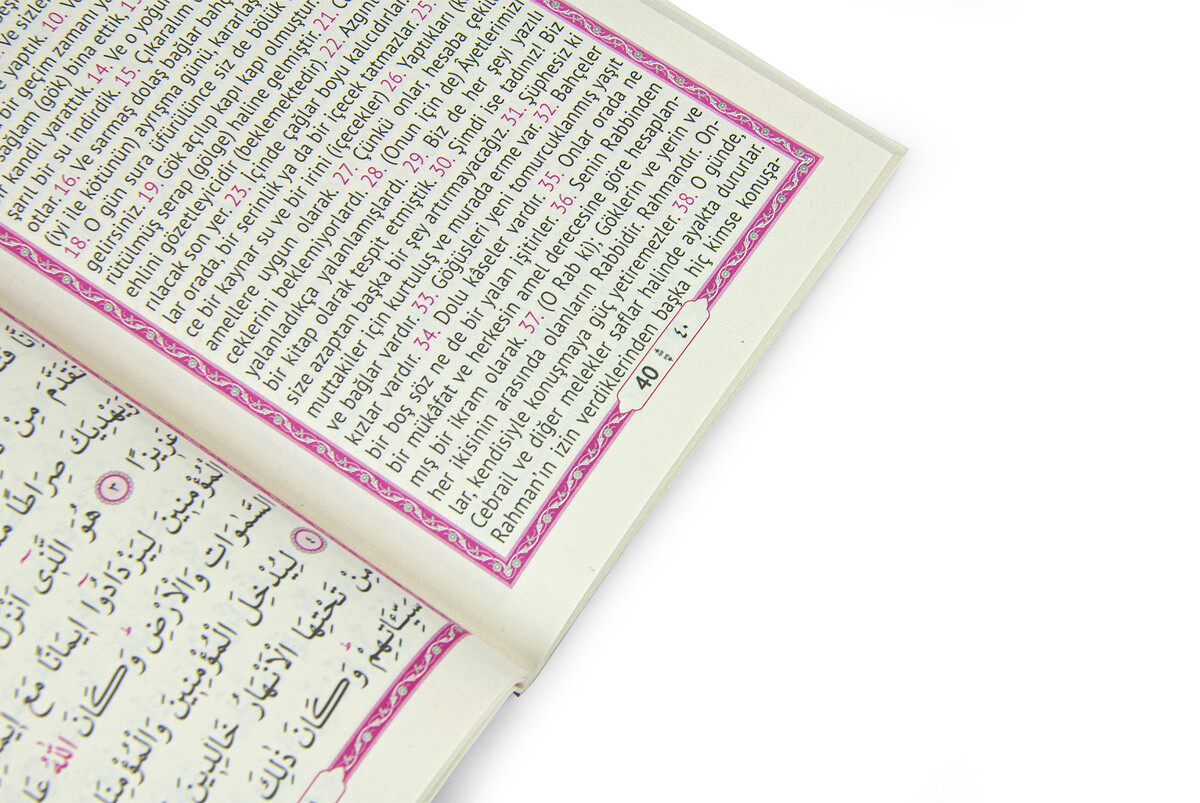 ve sizler
yaptık. 10. Ve
bir geçim zamanı ya
sağlam (gök) bina ettik. 1
kandil yarattık. 14. Ve o yoğu
şarıl bir su indirdik. 15. Çıkaralım d
otlar. 16. Ve sarmaş dolaş bağlar bahç
(iyi ile kötünün) ayrışma günü, kararlaş
18. O gün sura üfürülünce siz de bölük
gelirsiniz. 19. Gök açılıp kapı kapı olmuştur.
rütülmüş serap (gölge) haline gelmiştir. 21. C
ehlini gözetleyicidir (beklemektedir) 22. Azgın
rılacak son yer. 23. İçinde çağlar boyu kalıcıdırlar
lar orada, bir serinlik ya da bir içecek tatmazlar. 25.
ce bir kaynar su ve bir irini (çecekler) 26. Yaptıkları (k
amellere uygun olarak. 27. Çünkü onlar hesaba çekil
ceklerini beklemiyorlardı. 28. (Onun için de) Âyetlerimizi
yalanladıkça yalanlamışlardı. 29. Biz de her şeyi yazılı
bir kitap olarak tespit etmiştik. 30. Şimdi ise tadınız! Biz
size azaptan başka bir şey artırmayacağız. 31. Şüphesiz k
muttakiler için kurtuluş ve murada erme var. 32. Bahçeler
ve bağlar vardır. 33. Göğüsleri yeni tomurcuklanmış yaşıt
kızlar vardır. 34. Dolu kâseler vardır. 35. Onlar orada ne
bir boş söz ne de bir yalan işitirler. 36. Senin Rabbinden
bir mükâfat ve herkesin amel derecesine göre hesaplan-
mış bir ikram olarak. 37. (O Rab ki), Göklerin ve yerin ve
her ikisinin arasında olanların Rabbidir. Rahmandır. On-
lar, kendisiyle konuşmaya güç yetiremezler. 38. O günde,
Cebrail ve diğer melekler saflar halinde ayakta dururlar
Rahman'ın izin verdiklerinden başka hiç kimse konuşa-
40 ٤٠
تَقَدَّمَ مِنْ
وَيَهْدِيَكَ صِرَاطًا
عَزِيزًا ٣ هُوَ الَّذِى اَنْزَلَ
الْمُؤْمِنِينَ لِيَزْدَادُوا اِيمَانًا مَعَ
السَّمٰوَاتِ وَالْاَرْضِ وَكَانَ اللّٰهُ
٤ لِيُدْخِلَ الْمُؤْمِنِينَ وَالْمُؤْمِنَا
مِنْ تَحْتِهَا الْاَنْهَارُ خَالِدِينَ
سَيِّـَٔاتِهِمْ وَكَانَ ذٰلِكَ